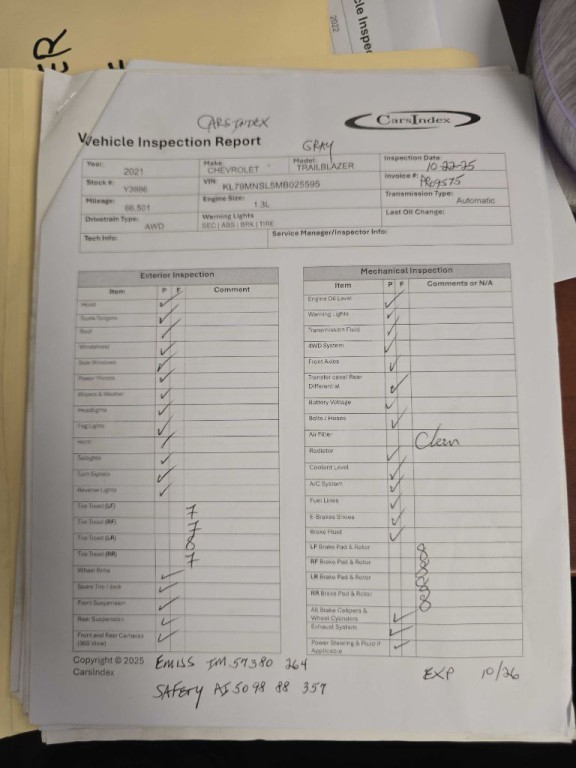 cle Inspec
2022
ER
CARSINDEX
CarsIndex
Vehicle Inspection Report
GRAY
Year: 2021
Make: CHEVROLET
Model: TRAILBLAZER
Inspection Date: 10-22-25
Stock #: Y3886
VIN: KL79MNSL5MB025595
Invoice #:
Mileage: 66,501
Engine Size: 1.3L
Transmission Type: Automatic
Drivetrain Type: AWD
Warning Lights SEC | ABS | BRK | TIRE
Last Oil Change:
Tech Info:
Service Manager/Inspector Info:
Exterior Inspection
Item P F Comment
Hood ✓
Doors/Tailgate ✓
Roof ✓
Windshield ✓
Side Windows ✓
Power Mirrors ✓
Wipers & Washer ✓
Headlights ✓
Fog Lights ✓
Horn ✓
Taillights ✓
Turn Signals ✓
Reverse Lights ✓
Tire Tread (LF) 7
Tire Tread (RF) 7
Tire Tread (LR)
Tire Tread (RR) 7
Wheel Rims ✓
Spare Tire / Jack ✓
Front Suspension ✓
Rear Suspension ✓
Front and Rear Cameras (360 View) ✓
Mechanical Inspection
Item P F Comments or N/A
Engine Oil Level ✓
Warning Lights ✓
Transmission Fluid ✓
4WD System ✓
Front Axles ✓
Transfer case/ Rear Differential ✓
Battery Voltage ✓
Belts / Hoses ✓
Air Filter Clean
Radiator ✓
Coolant Level ✓
A/C System ✓
Fuel Lines ✓
E-Brakes Shoes ✓
Brake Fluid ✓
LF Brake Pad & Rotor 8
RF Brake Pad & Rotor 8
LR Brake Pad & Rotor 8
RR Brake Pad & Rotor 8
All Brake Calipers & Wheel Cylinders ✓
Exhaust System ✓
Power Steering & Fluid if Applicable ✓
Copyright © 2025
CarsIndex
EMISS IM 57380 264
SAFETY AI 5098 88 357
EXP 10/26